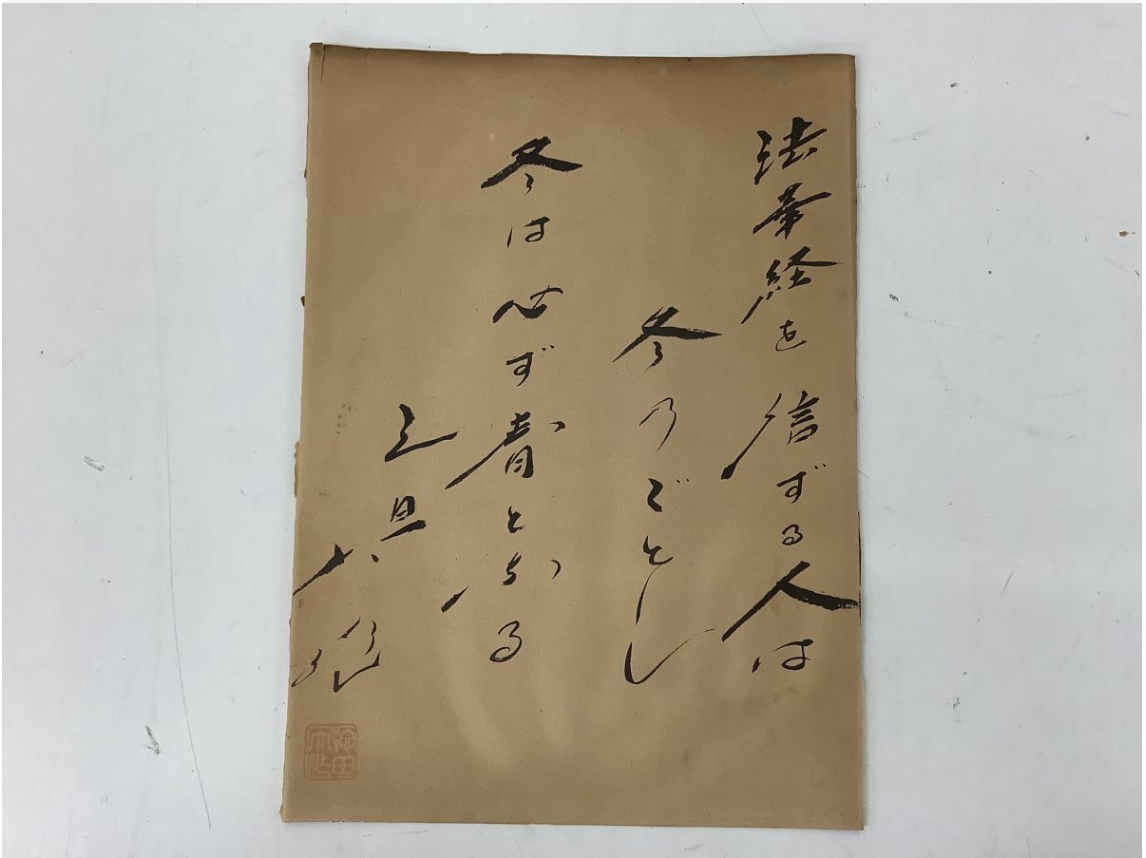 法華経を信ずる人は
冬のごとし
冬は必ず春となる
元旦
大作